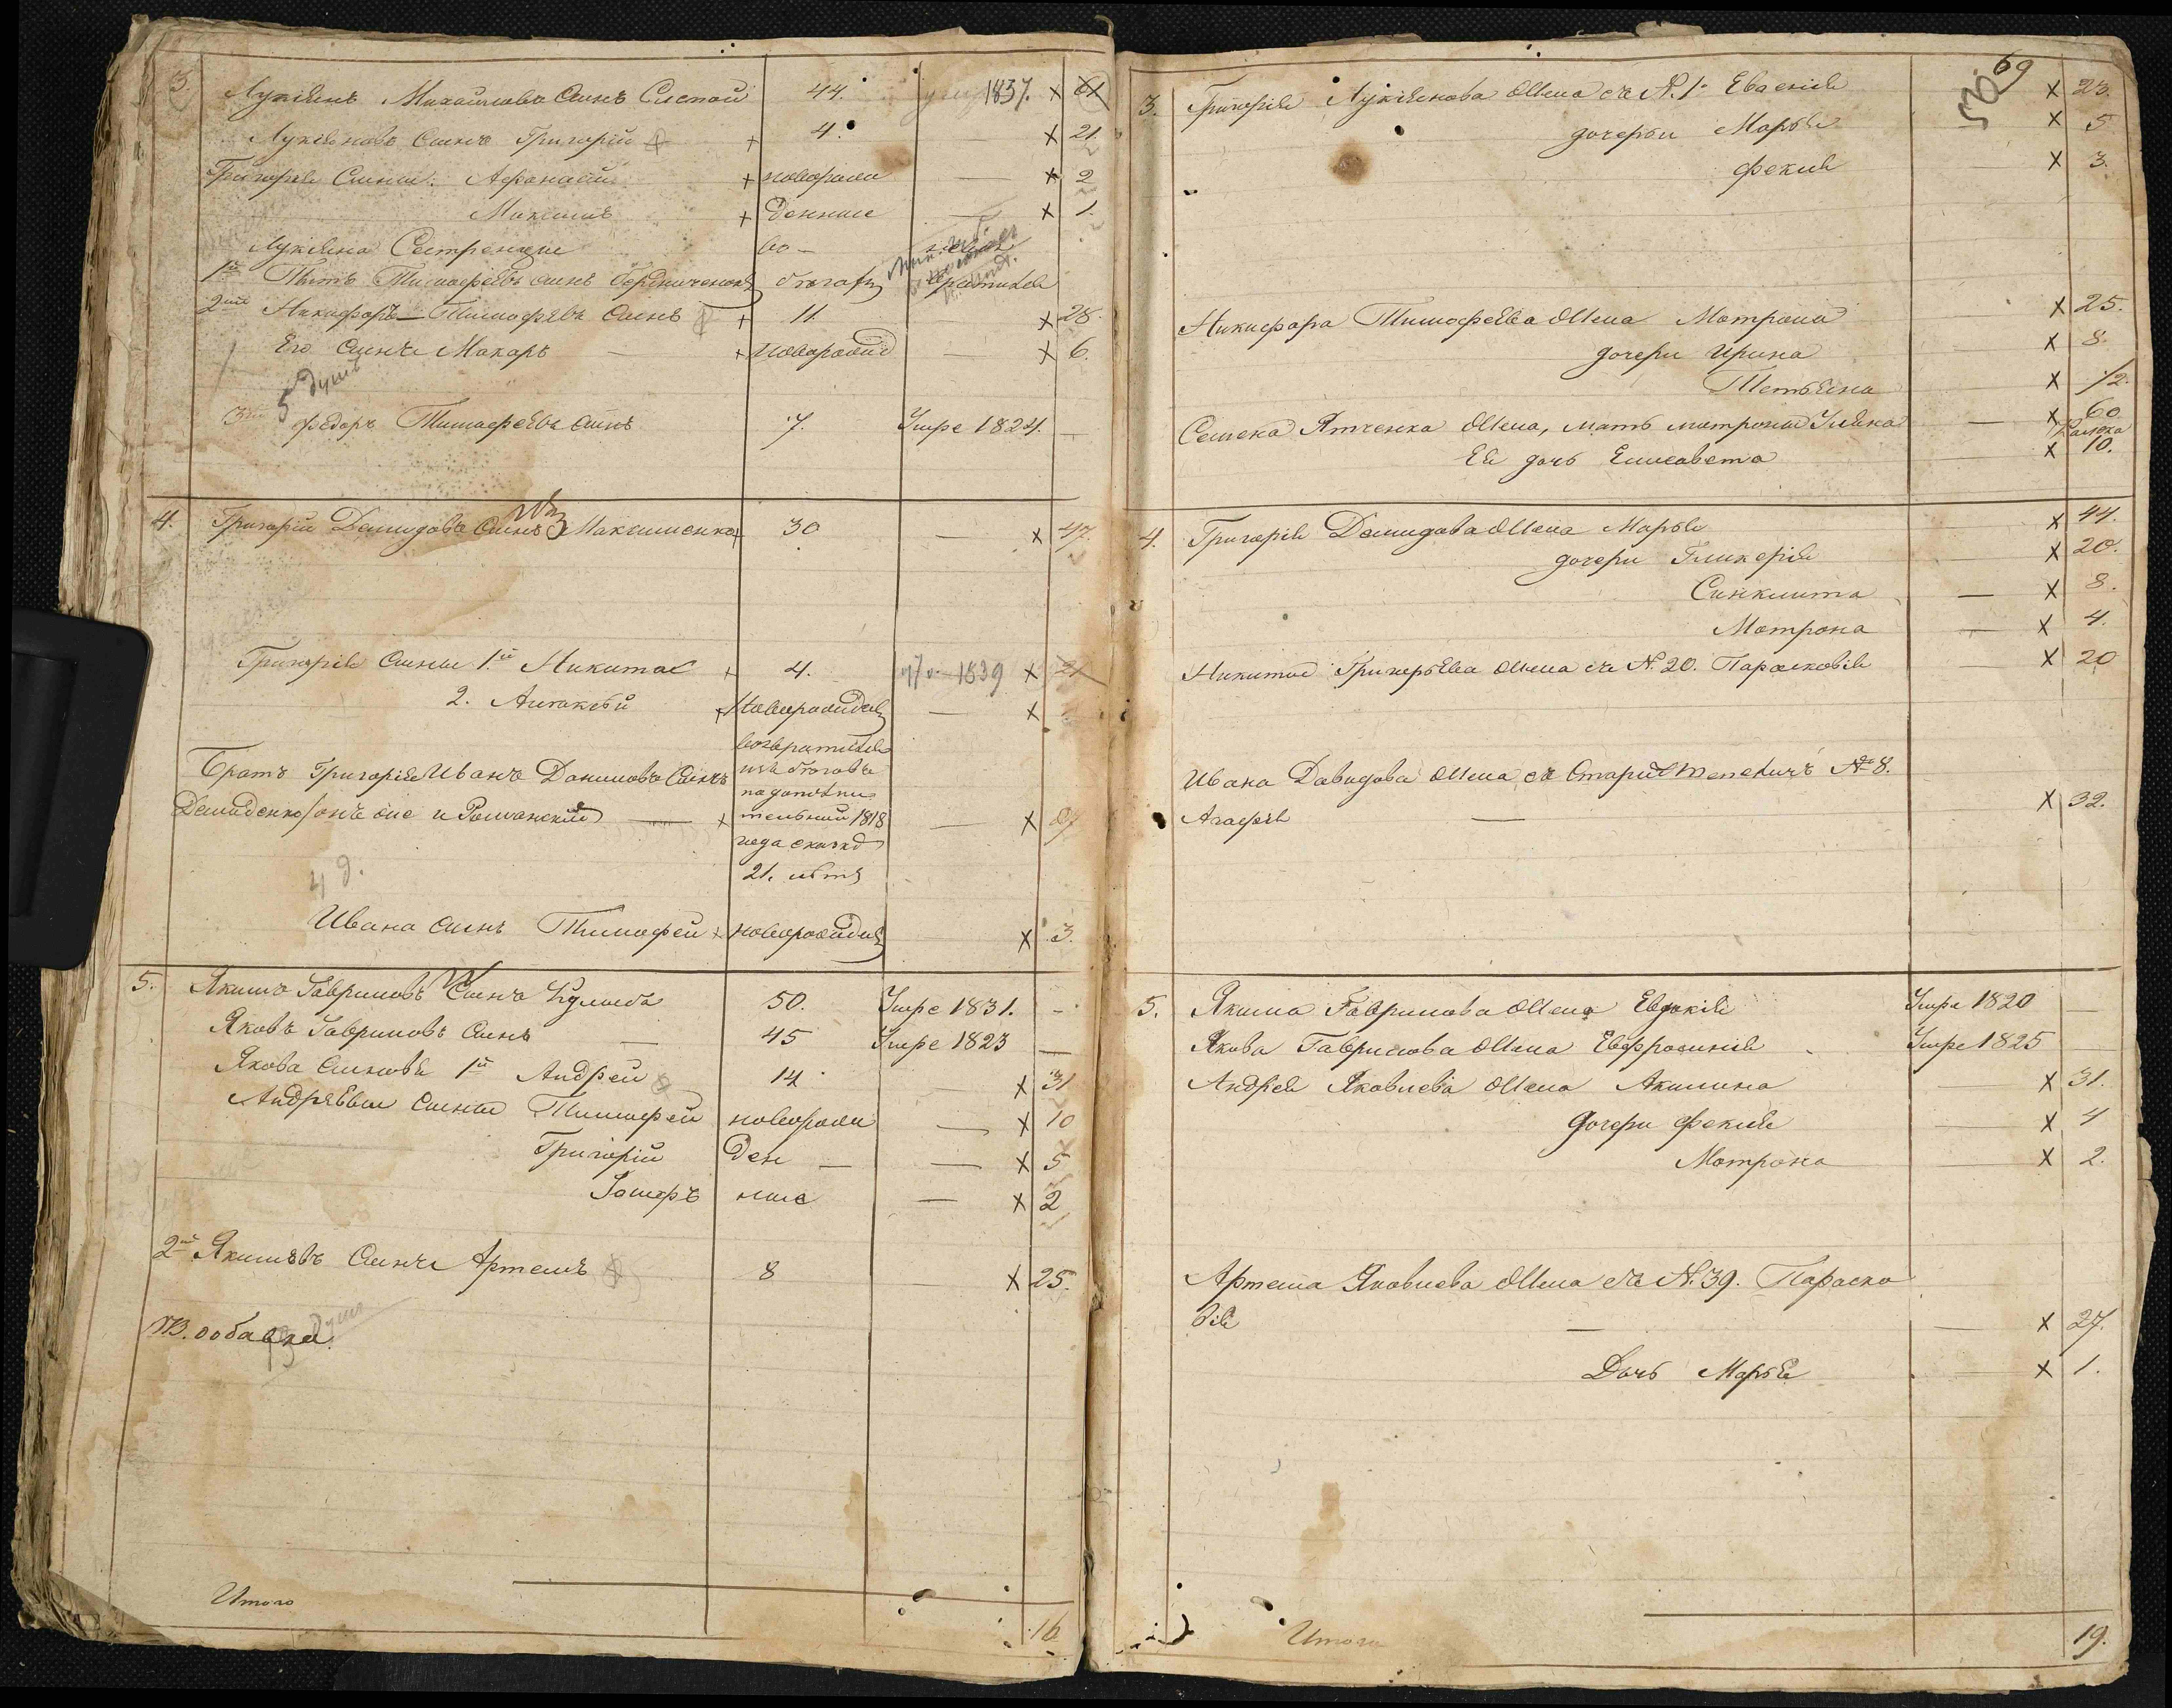 3. Лукіянъ Михайловъ сынъ Слепой 44. 1837. х 61
Лукіяновъ сынъ Григорій + 4. — х 21.
Григорія сыны: Афанасій + новорожд — х 2
Максимъ + денные — х 1.
Лукіяна Сестренцы во —
1й Титъ Тимофѣевъ сынъ бѣгахъ
2й Никифоръ Тимофѣевъ сынъ + 11 х 28.
Его сынъ Макаръ — + новорожд — х 6.
5 душъ
3й Федоръ Тимофѣевъ сынъ 7. Умре 1824. —
4. Григорій Демидовъ сынъ Максименко + 30 — х 47.
Григорія сыны 1й Никита + 4. 1839 х 21
2. Алексѣй + новорожден — х
возвратился
Братъ Григорія Иванъ Даниловъ сынъ изъ бѣговъ
по дополни
Демиденко онъ же и Романскій — + тельной 1818 — х
года сказкѣ
21. лѣтъ
4 д.
Ивана сынъ Тимофей + новорожден х 3.
5. Якимъ Гавриловъ сынъ Кулиба 50. Умре 1831. -
Яковъ Гавриловъ сынъ — 45 Умре 1823 —
Якова сыновья 1й Андрей 14 — х 31
Андрѣевы сыны Тимофей новорожд — х 10
Григорій ден — — х 5
ные — х 2
2й Якимовъ сынъ Артемъ 8 — х 25.
NB. добавка.
душъ
Итого 16
69
3. Григорія Лукіянова жена съ №. 1. Евгенія х 23.
дочери Марья х 5
Фекла х 3.
Никифора Тимофѣева жена Матрона х 25.
дочери Ирина х 8.
Татьяна х 1/2.
Семена Ятченка жена, мать матроны Уляна — х 60
Ея дочь Елисавета х 10.
4. Григорія Демидова жена Марья х 44.
дочери Гликерія х 20.
Синклита — х 8.
Матрона — х 4.
Никиты Григорьева жена съ №. 20. Парасковія — х 20
Ивана Давидова жена съ №. 8.
Агафія — х 32.
5. Якима Гаврилова жена Евдокія Умре 1820 —
Якова Гаврилова жена Евфросинія Умре 1825 —
Андрея Яковлева жена Акилина — х 31.
Дочери Фекла — х 4
Матрона — х 2.
Артема Яковлева жена съ №. 39. Параско
вія — — х 27.
Дочь Марья — х 1.
Итого 19.